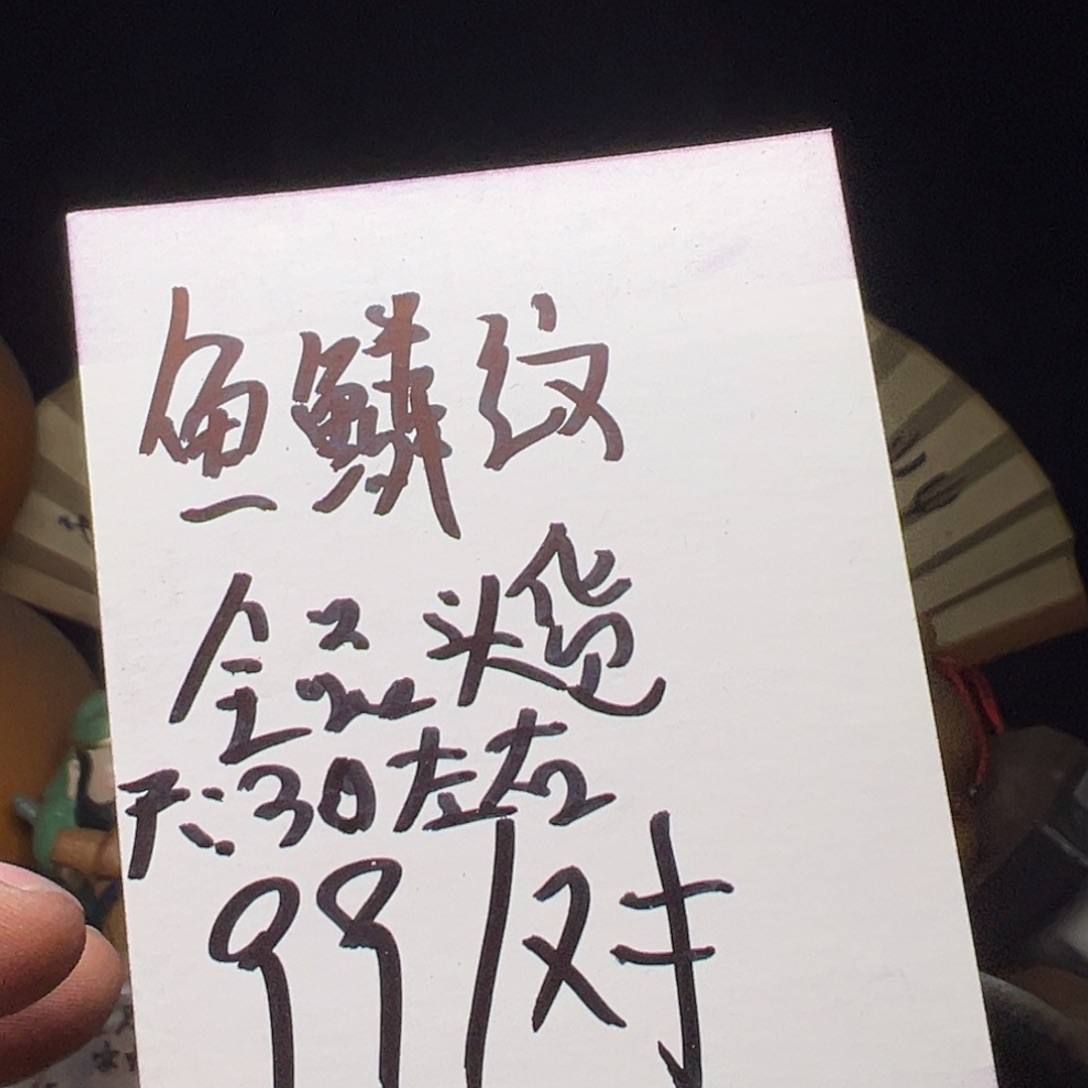 鱼鳞纹
全品头货
尺:30左右
99/对